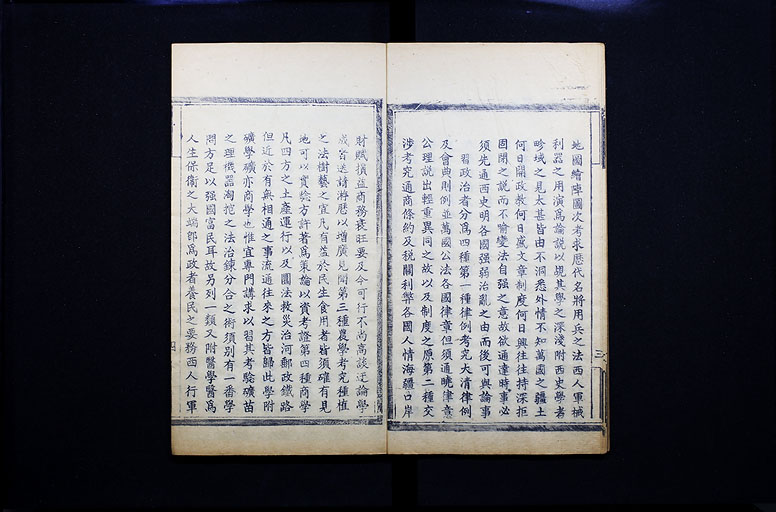 地圖繪陣圖次考求歷代名將用兵之法西人軍械
利器之用演爲論說以覘其學之深淺附西史學者
畛域之見太甚皆由不洞悉外情不知萬國之疆土
何日開政教何日盛文章制度何日興往往持深拒
固閉之說而不喻變法自强之意故欲通達時事必
須先通西史明各國强弱治亂之由而後可與論事
習政治者分爲四種第一種律例考究大清律例
及會典則例並萬國公法各國律章但須通曉律意
公理說出輕重異同之故以及制度之原第二種交
涉考究通商條約及稅關利弊各國人情海疆口岸
財賦損益商務衰旺要及今可行不尚高談迂論學
成皆送請游歷以增廣見聞第三種農學考究種植
之法樹藝之宜凡有益於民生食用者皆須確有見
地可以實騐方許著爲策論以資考證第四種商學
凡四方之土產運行以及圜法救災治河郵政鐵路
但近於有無相通之事流通往來之方皆歸此學附
礦學礦亦商學也惟宜專門講求以習其考騐礦苗
之理機器淘挖之法治鍊分合之術須別有一番學
問方足以强國富民耳故另列一類又附醫學醫爲
人生保衞之大端卽爲政者養民之要務西人行軍
三
四